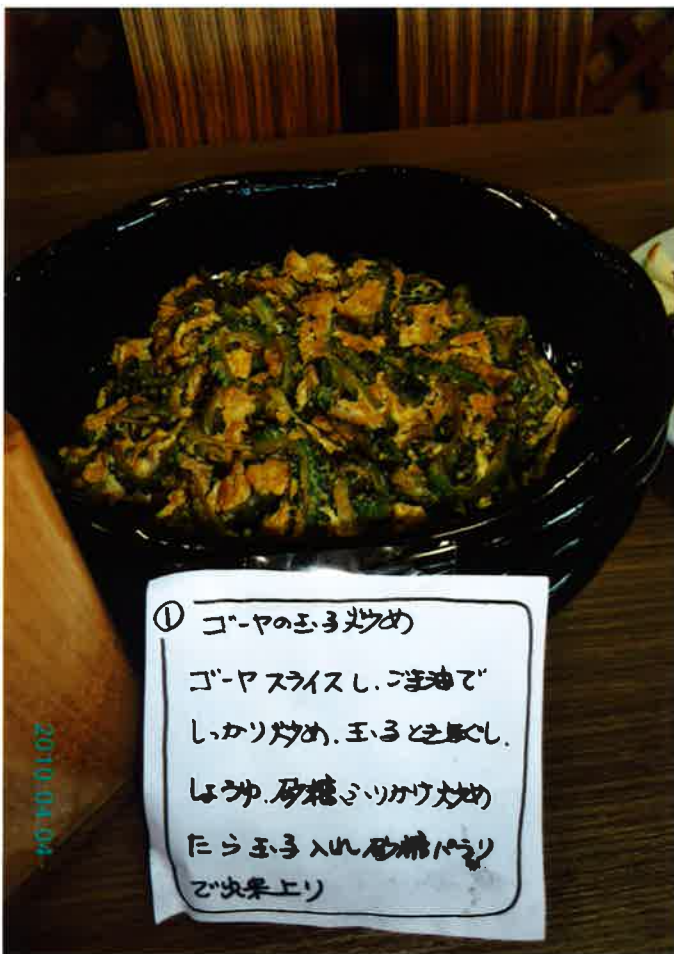 ① ゴーヤの玉子炒め
ゴーヤスライスし、ごま油で
しっかり炒め、玉子ときほぐし、
しょうゆ、砂糖ふりかけ炒め
たら玉子入れ砂糖パラリ
で出来上り
2010.04.04